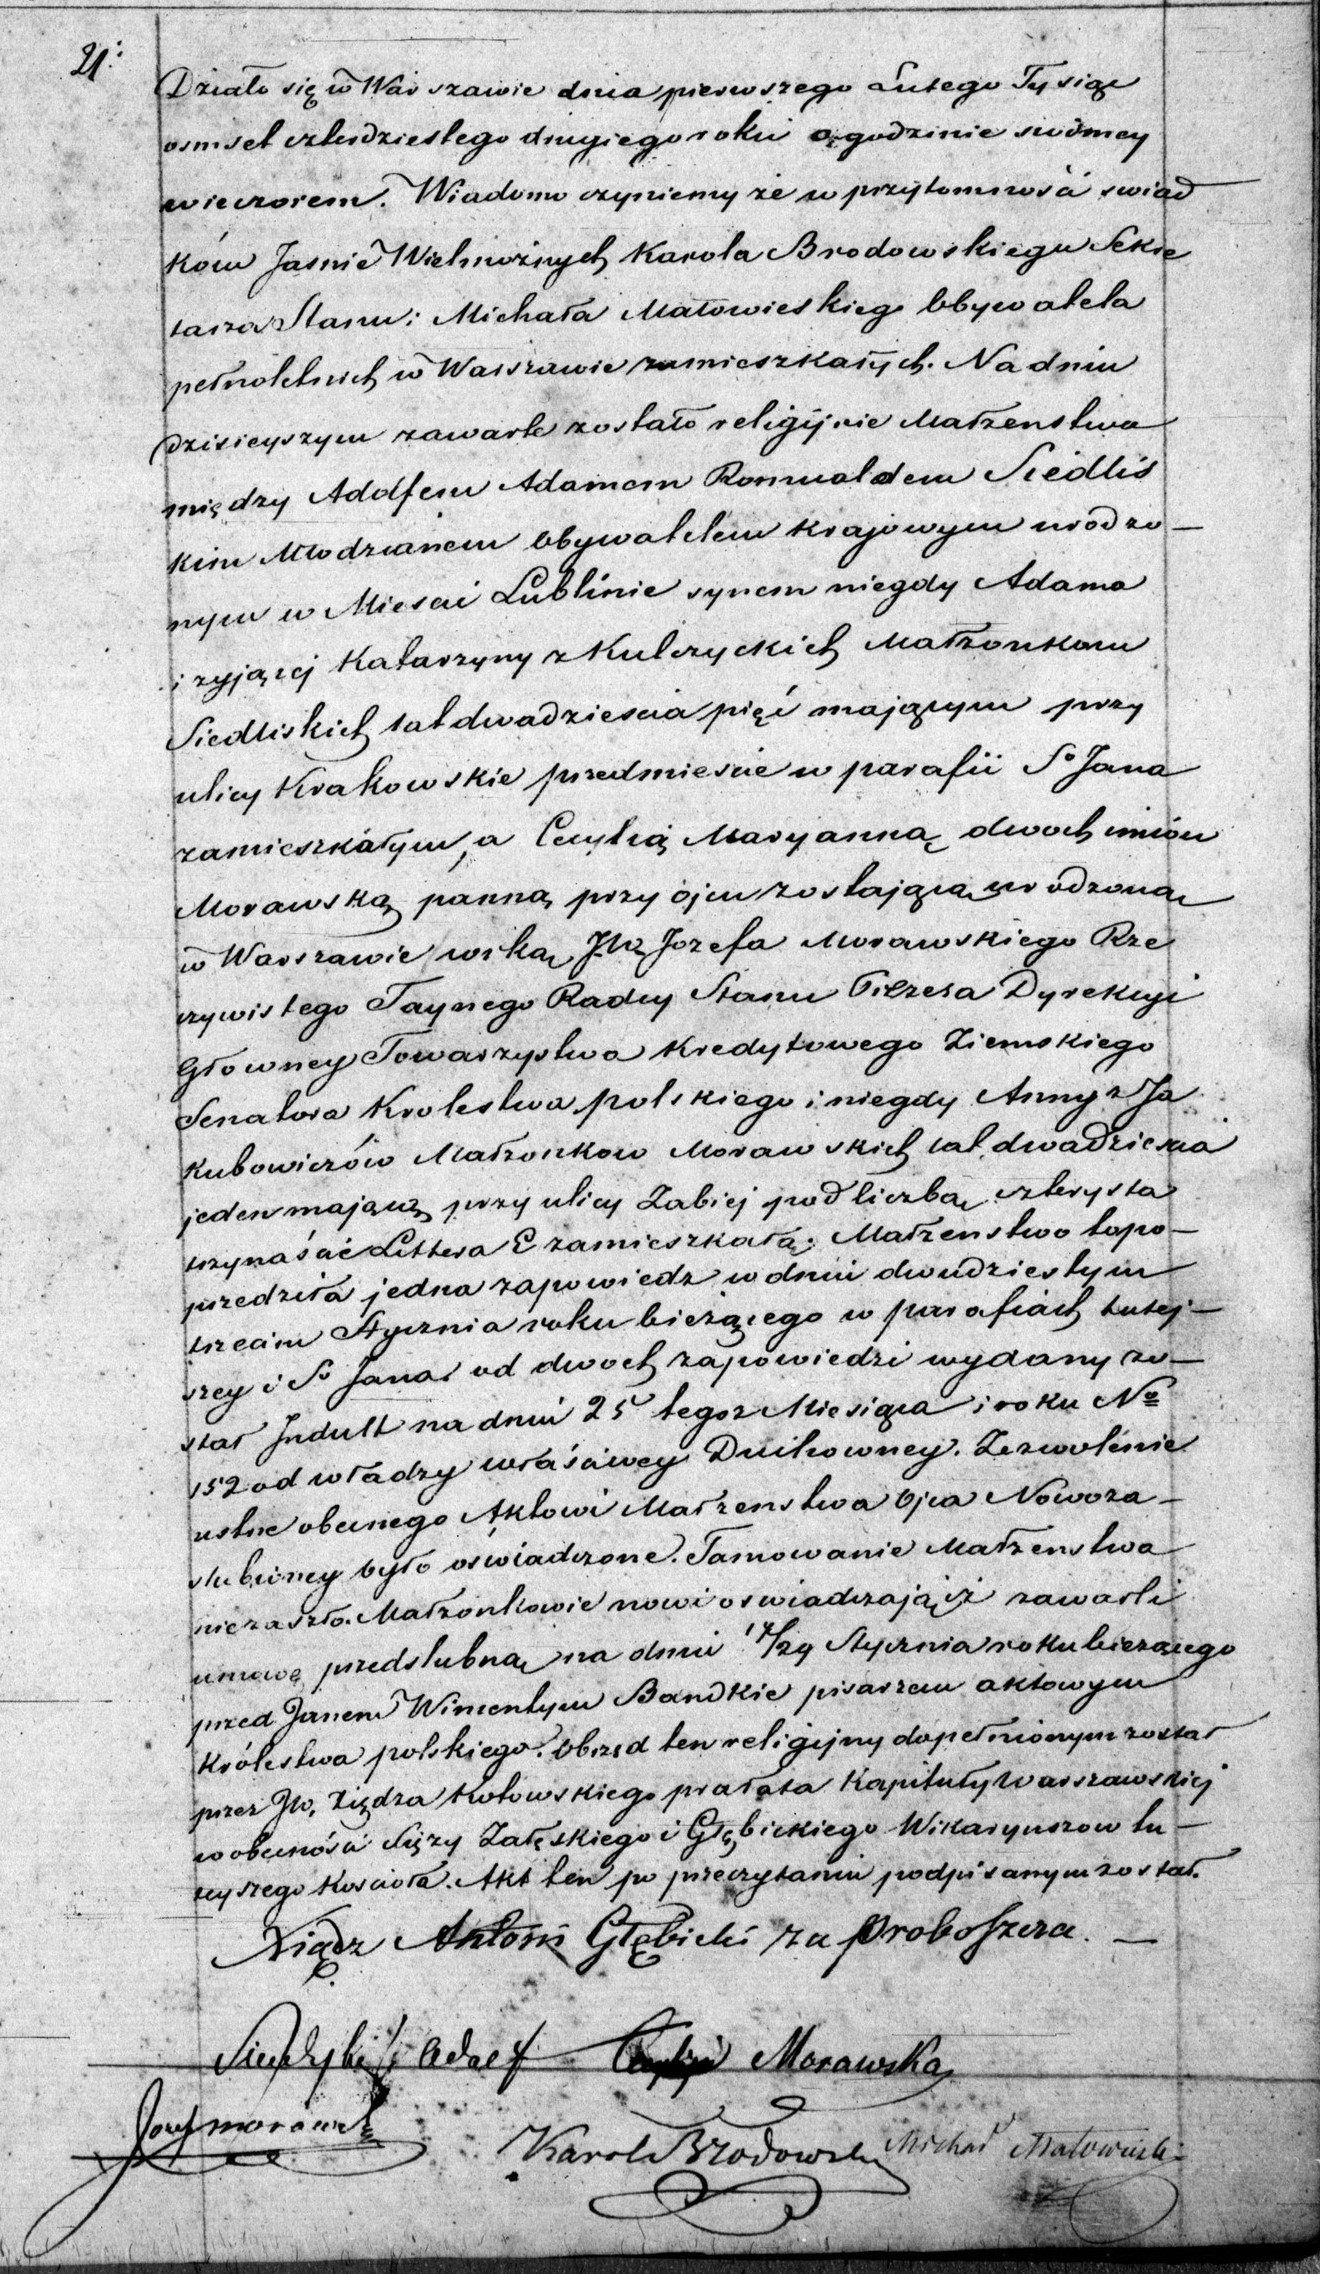 21:
Działo się w Warszawie dnia pierwszego Lutego Tysiąc
osmset czterdziestego drugiego roku o godzinie siodmey
wieczorem. Wiadomo czyniemy że w przytomnośći swiad
ków Jasnie Wielmożnych Karola Brodowskiego Sekre
tarza Stanu i Michała Małowieskiego Obywatela
pełnoletnich w Warszawie zamieszkałych. Na dniu
dzisieyszym zawarte zostało religijnie Małżenstwo
między Adolfem Adamem Romualdem Siedlis
kim Młodzianem Obywatelem Krajowym urodzo-
nym w Miescie Lublinie synem niegdy Adama
i zyjącej Katarzyny z Kulczyckich Małzonkow
Siedliskich lat dwadziescia pięć mającym przy
ulicy Krakowskie przedmiescie w parafii So Jana
zamieszkałym, a Cecylią Maryanną dwoch imion
Morawską panną przy ojcu zostającą urodzoną
w Warszawie corką JW. Jozefa Morawskiego Rze
czywistego Taynego Radcy Stanu Prezesa Dyrekcyi
Głowney Towarzystwa Kredytowego Ziemskiego
Senatora Krolestwa polskiego i niegdy Anny z Ja
kubowiczów Małzonkow Morawskich lat dwadziescia
jeden mającą przy ulicy Zabiej pod liczbą czterysta
trzynaśćie Littera E zamieszkałą. Małzenstwo to po-
przedziła jedna zapowiedz w dniu dwudziestym
trzecim Stycznia roku bieżącego w parafiach tutej-
szey i So Jana od dwoch zapowiedzi wydany zo-
stał Indult na dniu 25 tegoz Miesiąca i roku No
152 od władzy właśćiwey Duchowney. Zezwolenie
ustne obecnego Aktowi Małzenstwa Ojca Nowoza-
slubioney było oświadczone. Tamowanie Małzenstwa
nie zaszło. Małzonkowie nowi oswiadczają iż zawarli
umowę przedslubną na dniu 17/29 Stycznia roku bieżącego
przed Janem Wincentym Bandkie pisarzem aktowym
Królestwa polskiego. Obrzęd ten religijny dopełnionym został
przez JW. Xiędza Kotowskiego prałata Kapituły Warszawskiej
w obecnośći Xięzy Załęskiego i Głębickiego Wikaryuszow tu-
teyszego Koscioła. Akt ten po przeczytaniu podpisanym został.
Xiądz Antoni Głębicki za Proboszcza. —
Adolf Cecylia Morawska
Jozef Morawski
Karol Brodowski Michał Małowieski